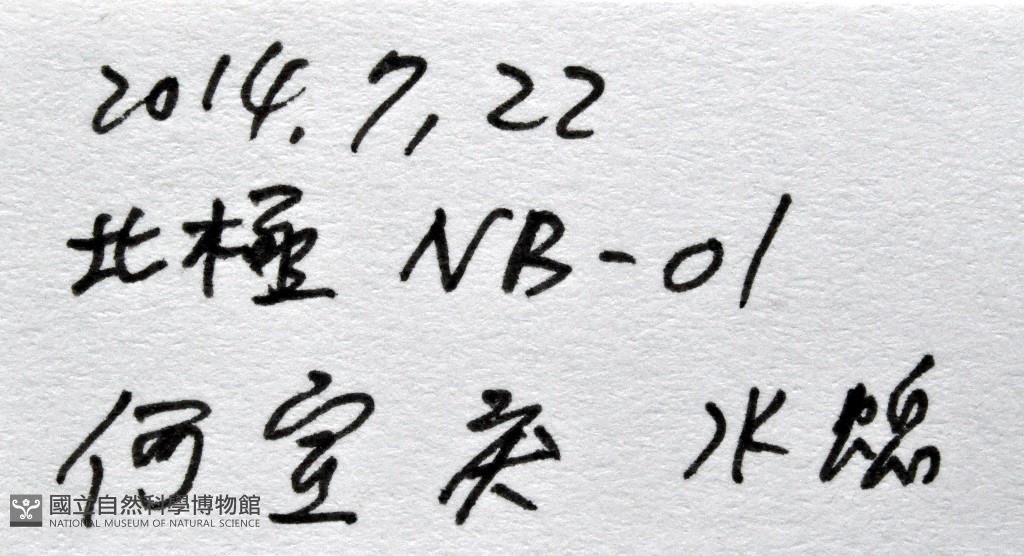 2014.7,22
北極 NB-01
何宣慶 水螅
國立自然科學博物館
NATIONAL MUSEUM OF NATURAL SCIENCE